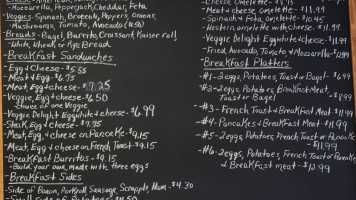 Mozzarella, Pepperjack, Cheddar, Feta
Veggies - Spinach, Broccoli, Peppers, Onions,
Mushrooms, Tomato, Avocado (Extra)
Breads - Bagel, Burrito, Croissant, Kaiser roll
White, Wheat, or Rye Bread
Breakfast Sandwiches
- Egg & Cheese - $5.55
- Meat & Egg - $6.75
- Meat, Egg & Cheese - $7.25
- Veggie, Egg & Cheese - $6.50
choice of one veggie
- Veggie Delight Eggwhite & Cheese - $6.99
- Steak, Egg & Cheese -
- Meat, Egg & cheese on Pancake - $9.15
- Meat, Egg & cheese on French Toast - $9.15
- Breakfast Burritos - $9.15
- Build your own, made with three eggs
Breakfast Sides
- Side of Bacon, Porkroll Sausage, Scrapple, Ham - $4.30
- Small side of Potatoes - $4.50
- Meat & cheese omelette - $11.99
- Spinach & Feta omelette - $10.45
- Western omelette with cheese - $11.99
- Veggie Delight Eggwhite & cheese - $11.99
- Fried, Avocado, Tomato & Mozzarella -
Breakfast Platters
- #1 - 2 eggs, Potatoes, Toast or Bagel - $6.99
- #2 - 2 eggs, Potatoes, Breakfast Meat,
Toast or Bagel - $8.99
- #3 - French Toast & Breakfast Meat - $11.99
- #4 - Pancakes & Breakfast Meat - $11.99
- #5 - 2 eggs, Potatoes, French Toast or Pancake
- $11.99
- #6 - 2 eggs, Potatoes, French Toast or Pancake
& Breakfast meat - $12.99